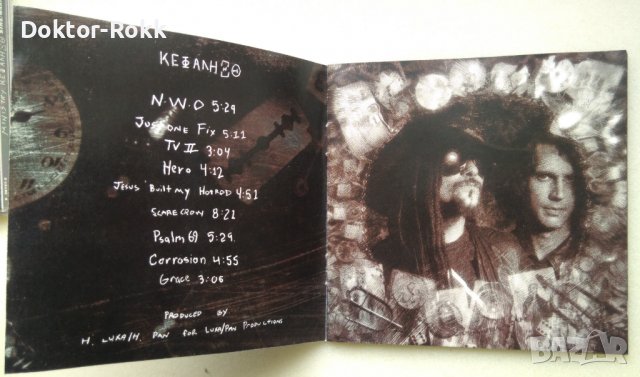 Doktor-Rokk
ΚΕΦΑΛΗΞΘ
N.W.O 5:29
Just One Fix 5:11
TV II 3:04
Hero 4:12
Jesus Built my Hotrod 4:51
Scarecrow 8:21
Psalm 69 5:29
Corrosion 4:55
Grace 3:06
PRODUCED BY
H. LUXA/H. PAN FOR LUXA/PAN PRODUCTIONS
BAZAR